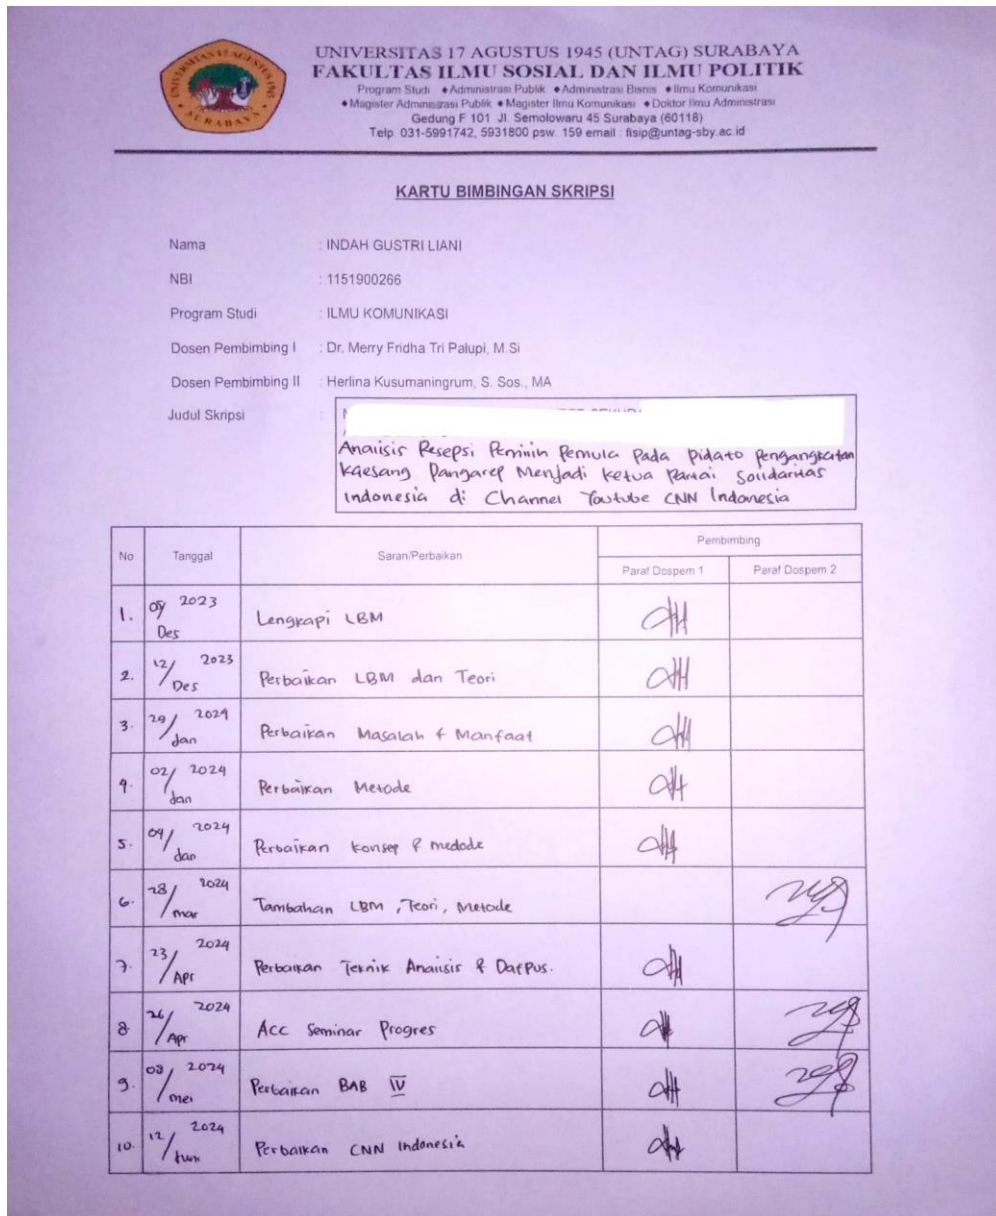 UNIVERSITAS 17 AGUSTUS 1945
SURABAYA
UNIVERSITAS 17 AGUSTUS 1945 (UNTAG) SURABAYA
FAKULTAS ILMU SOSIAL DAN ILMU POLITIK
Program Studi ♦Administrasi Publik ♦Administrasi Bisnis ♦Ilmu Komunikasi
♦Magister Administrasi Publik ♦Magister Ilmu Komunikasi ♦Doktor Ilmu Administrasi
Gedung F 101 Jl. Semolowaru 45 Surabaya (60118)
Telp. 031-5991742, 5931800 psw. 159 email : fisip@untag-sby.ac.id
KARTU BIMBINGAN SKRIPSI
Nama : INDAH GUSTRI LIANI
NBI : 1151900266
Program Studi : ILMU KOMUNIKASI
Dosen Pembimbing I : Dr. Merry Fridha Tri Palupi, M.Si
Dosen Pembimbing II : Herlina Kusumaningrum, S. Sos., MA
Judul Skripsi :
Analisis Resepsi Pemilih Pemula Pada Pidato Pengangkatan
Kaesang Pangarep Menjadi Ketua Partai Solidaritas
Indonesia di Channel Youtube CNN Indonesia
No Tanggal Saran/Perbaikan Pembimbing
Paraf Dospem 1 Paraf Dospem 2
1. Des 2023 Lengkapi LBM
2. 12/Des 2023 Perbaikan LBM dan Teori
3. 29/Jan 2024 Perbaikan Masalah & Manfaat
4. 02/Jan 2024 Perbaikan Metode
5. 04/Jan 2024 Perbaikan konsep & medode
6. 28/mar 2024 Tambahan LBM, Teori, Metode
7. 23/Apr 2024 Perbaikan Teknik Analisis & Darpus.
8. 26/Apr 2024 Acc Seminar Progres
9. 03/mei 2024 Perbaikan BAB IV
10. 12/ 2024 Perbaikan CNN Indonesia